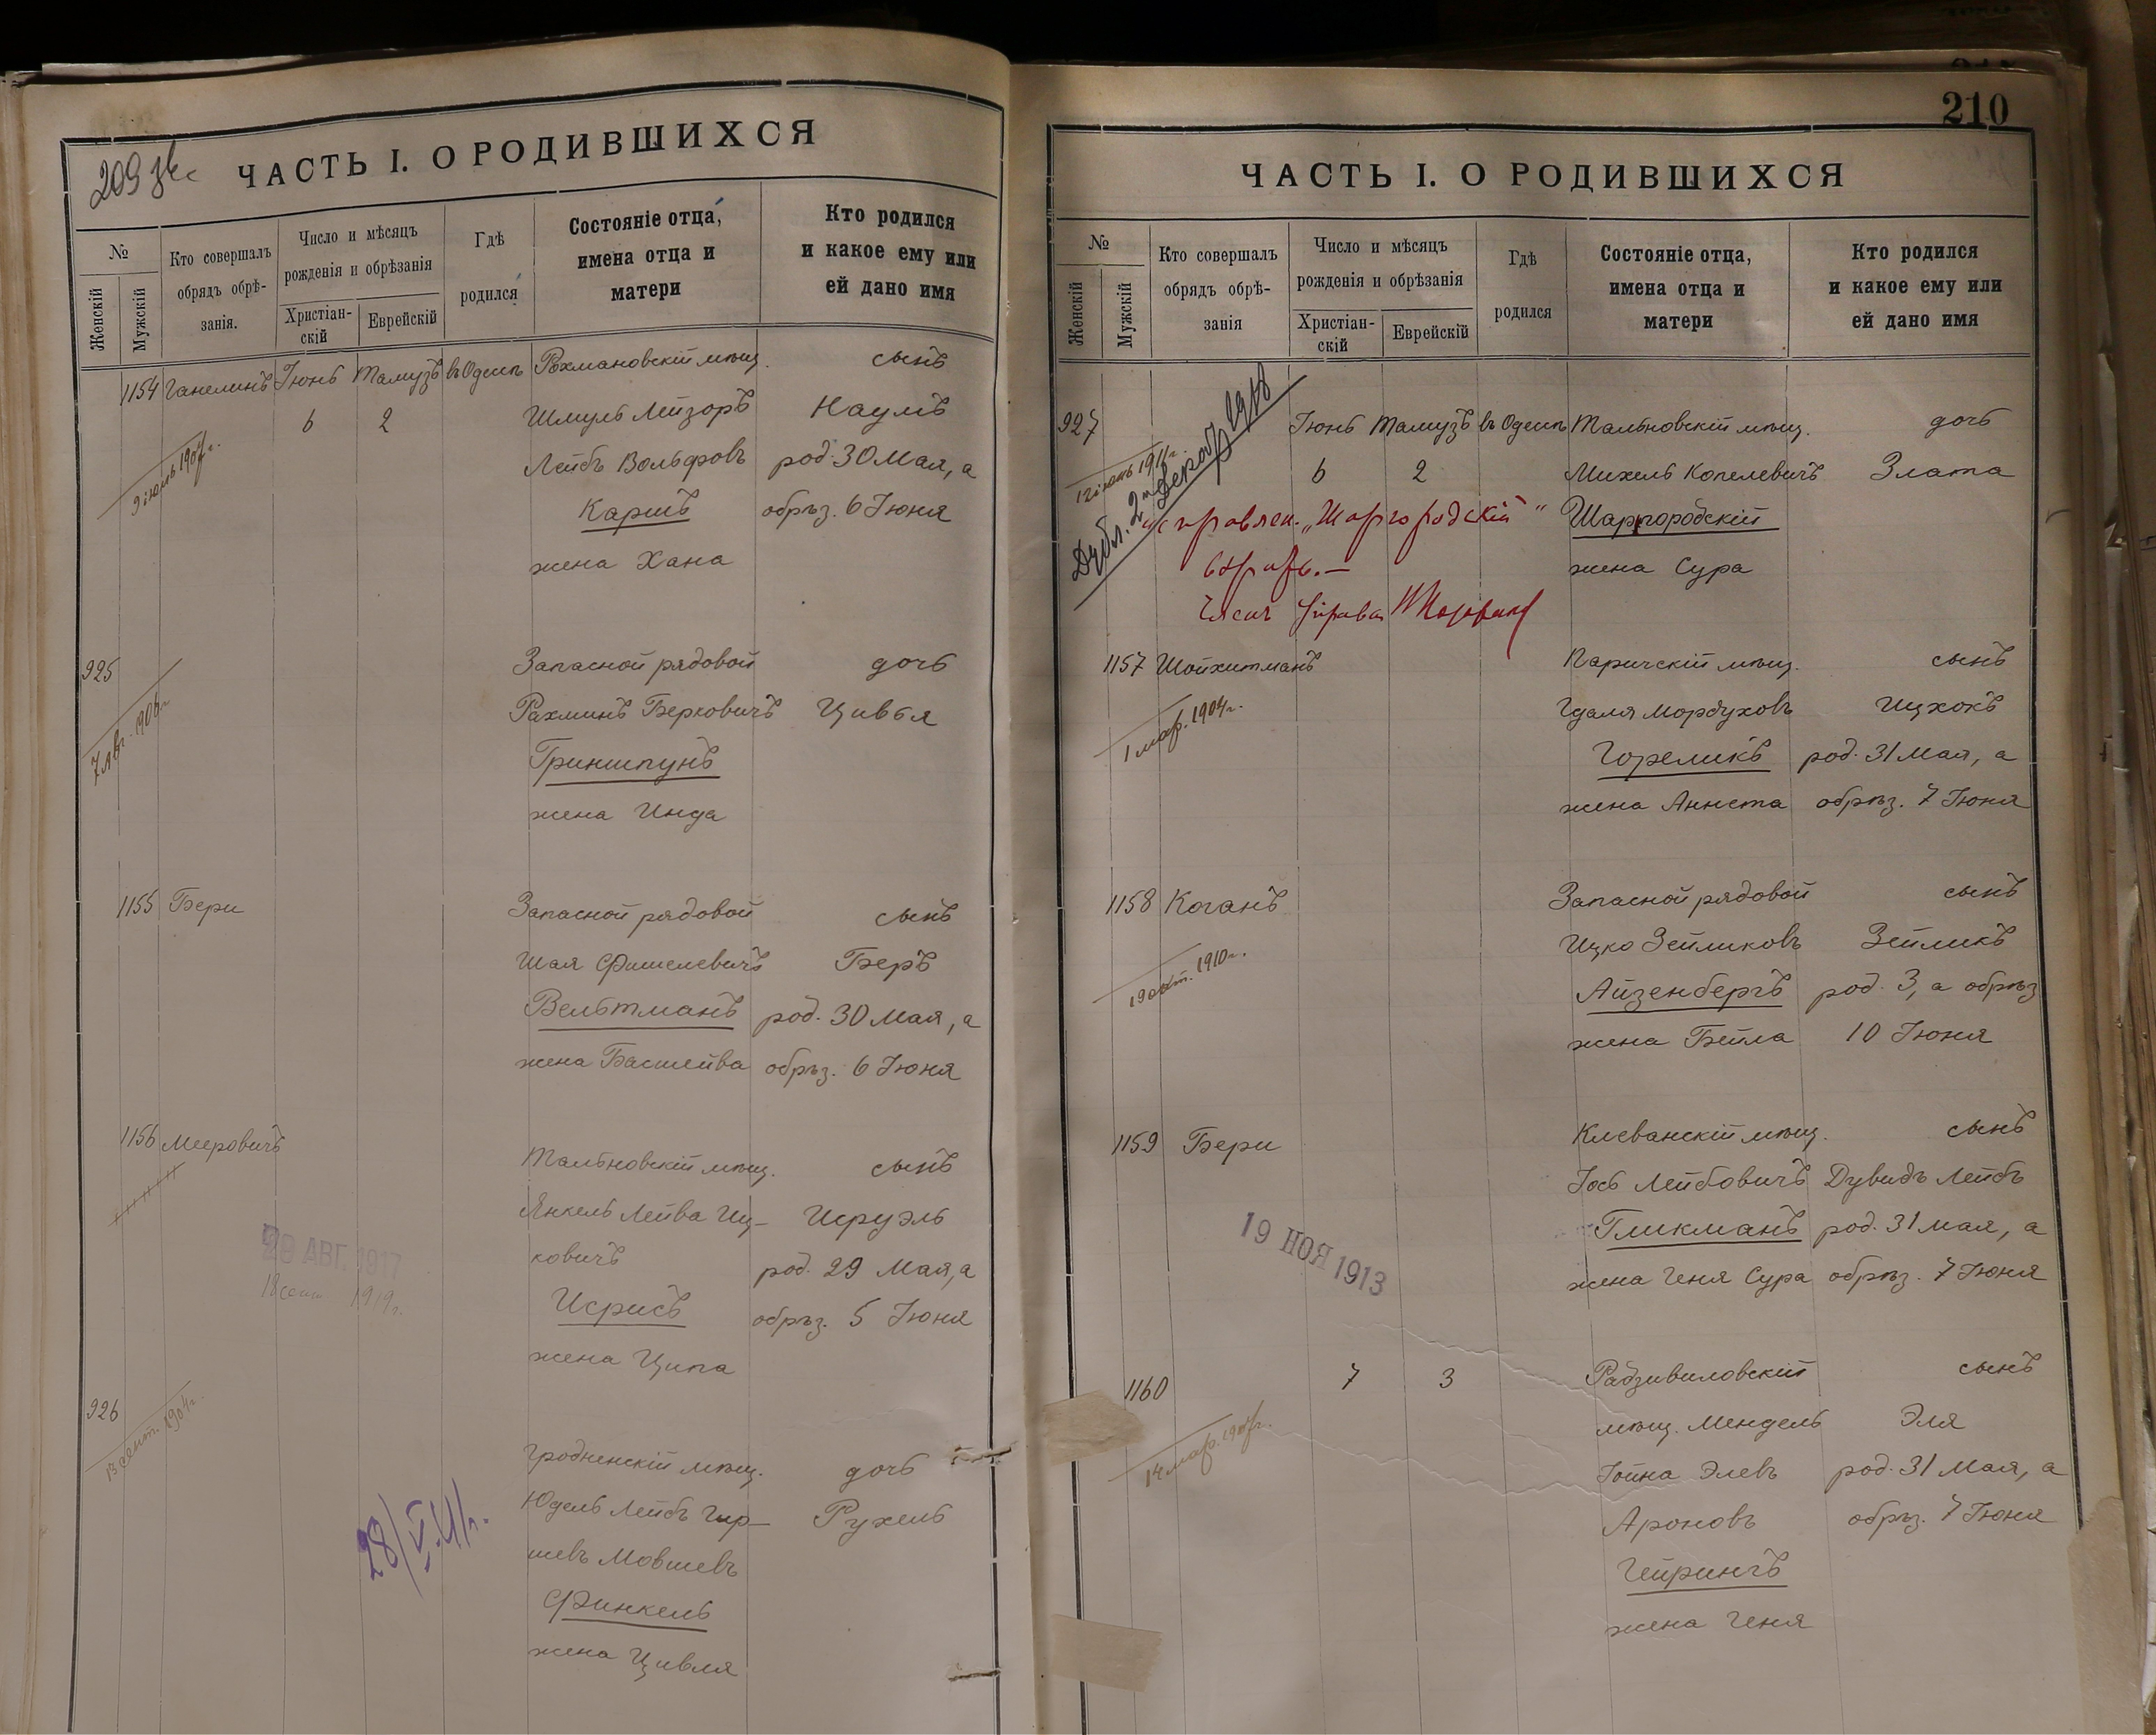 209
ЧАСТЬ I. О РОДИВШИХСЯ
№
Женскій
Мужскій
Кто совершалъ
обрядъ обрѣ-
занія.
Число и мѣсяцъ
рожденія и обрѣзанія
Христіан-
скій
Еврейскій
Гдѣ
родился
Состояніе отца,
имена отца и
матери
Кто родился
и какое ему или
ей дано имя
1154 Ганелинъ Іюнь Тамузъ въ Одессѣ Рохмановскій мѣщ. сынъ
6 2 Шмуль Лейзоръ Наумъ
9 іюль 1907г. Лейбъ Вольфовъ род. 30 Мая, а
Каришъ обрѣз. 6 Іюня
жена Хана
925 Запасной рядовой дочь
7 Авг. 1906г. Рахминъ Берковичъ Цивья
Гриншпунъ
жена Инда
1155 Бери Запасной рядовой сынъ
Шая Фишелевичъ Беръ
Вельтманъ род. 30 Мая, а
жена Басшейва обрѣз. 6 Іюня
1156 Мееровичъ Тальновскій мѣщ. сынъ
Янкель Лейва Иц- Исруэль
29 АВГ. 1917 ковичъ род. 29 Мая, а
18 сент 1919г. Исрисъ обрѣз. 5 Іюня
жена Ципа
926 13 сент. 1904г. Гродненскій мѣщ. дочь
28/V.11г. Юдель Лейбъ Гир- Рухель
шевъ Мовшевъ
Финкель
жена Цивля
210
ЧАСТЬ I. О РОДИВШИХСЯ
№
Женскій
Мужскій
Кто совершалъ
обрядъ обрѣ-
занія
Число и мѣсяцъ
рожденія и обрѣзанія
Христіан-
скій
Еврейскій
Гдѣ
родился
Состояніе отца,
имена отца и
матери
Кто родился
и какое ему или
ей дано имя
927 Іюнь Тамузъ въ Одессѣ Тальновскій мѣщ. дочь
1911г. 6 2 Михель Копелевичъ Злата
Дубл. 2 1918
исправлен. „Шаргородскій" Шаргородскій
вѣрно.— жена Сура
Членъ Управы
1157 Шойхитманъ Паричскій мѣщ. сынъ
1 мар. 1904г. Гдаля Мордуховъ Ицхокъ
Гореликъ род. 31 Мая, а
жена Аннета обрѣз. 7 Іюня
1158 Коганъ Запасной рядовой сынъ
19 окт. 1910г. Ицко Зейликовъ Зейликъ
Айзенбергъ род. 3, а обрѣз
жена Бейла 10 Іюня
1159 Бери Клеванскій мѣщ. сынъ
Іось Лейбовичъ Дувидъ Лейбъ
19 НОЯ 1913 Гликманъ род. 31 мая, а
жена Геня Сура обрѣз. 7 Іюня
1160 7 3 Радзивиловскій сынъ
14 мар. мѣщ. Мендель Эля
Іойна Элевъ род. 31 Мая, а
Ароновъ обрѣз. 7 Іюня
Гейрингъ
жена Геня